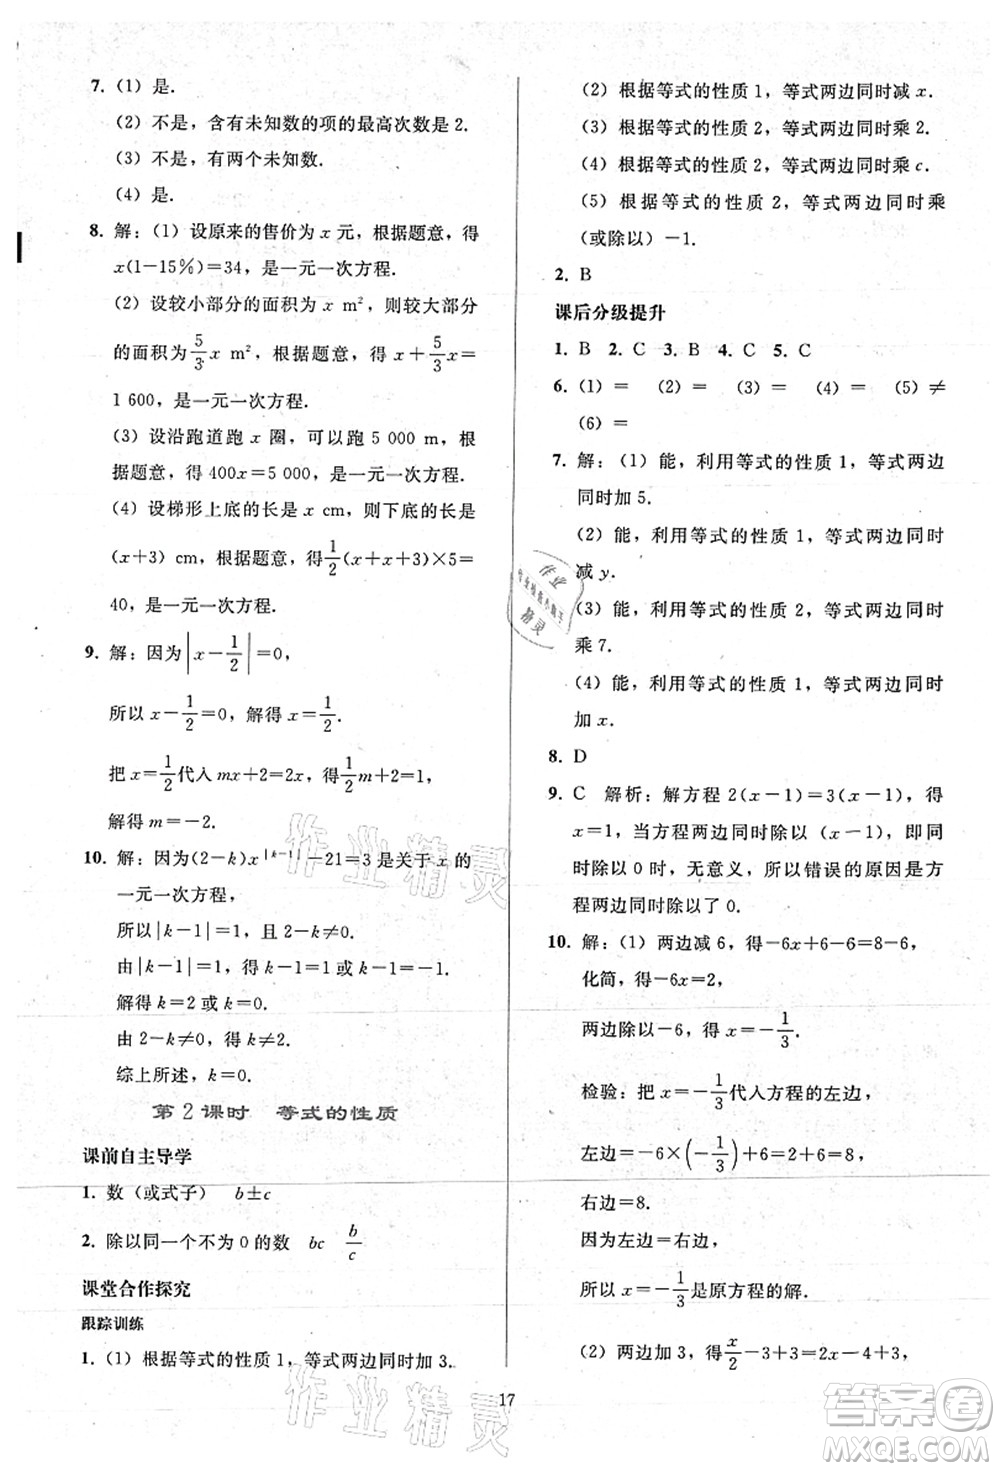 7. (1) 是.
(2) 不是，含有未知数的项的最高次数是 2.
(3) 不是，有两个未知数.
(4) 是.
8. 解：(1) 设原来的售价为 x 元，根据题意，得
x(1－15%)＝34，是一元一次方程.
(2) 设较小部分的面积为 x m²，则较大部分
的面积为5/3 x m²，根据题意，得 x＋5/3x＝
1 600，是一元一次方程.
(3) 设沿跑道跑 x 圈，可以跑 5 000 m，根
据题意，得 400x＝5 000，是一元一次方程.
(4) 设梯形上底的长是 x cm，则下底的长是
(x＋3) cm，根据题意，得1/2(x＋x＋3)×5＝
40，是一元一次方程.
9. 解：因为|x－1/2|＝0，
所以 x－1/2＝0，解得 x＝1/2.
把 x＝1/2代入 mx＋2＝2x，得1/2m＋2＝1，
解得 m＝－2.
10. 解：因为(2－k)x^|k－1|－21＝3 是关于 x 的
一元一次方程，
所以|k－1|＝1，且 2－k≠0.
由|k－1|＝1，得 k－1＝1 或 k－1＝－1.
解得 k＝2 或 k＝0.
由 2－k≠0，得 k≠2.
综上所述，k＝0.
第 2 课时 等式的性质
课前自主导学
1. 数（或式子） b±c
2. 除以同一个不为 0 的数 bc b/c
课堂合作探究
跟踪训练
1. (1) 根据等式的性质 1，等式两边同时加 3.
(2) 根据等式的性质 1，等式两边同时减 x.
(3) 根据等式的性质 2，等式两边同时乘 2.
(4) 根据等式的性质 2，等式两边同时乘 c.
(5) 根据等式的性质 2，等式两边同时乘
(或除以)－1.
2. B
课后分级提升
1. B 2. C 3. B 4. C 5. C
6. (1) ＝ (2) ＝ (3) ＝ (4) ＝ (5) ≠
(6) ＝
7. 解：(1) 能，利用等式的性质 1，等式两边
同时加 5.
(2) 能，利用等式的性质 1，等式两边同时
减 y.
(3) 能，利用等式的性质 2，等式两边同时
乘 7.
(4) 能，利用等式的性质 1，等式两边同时
加 x.
8. D
9. C 解析：解方程 2(x－1)＝3(x－1)，得
x＝1，当方程两边同时除以 (x－1)，即同
时除以 0 时，无意义，所以错误的原因是方
程两边同时除以了 0.
10. 解：(1) 两边减 6，得－6x＋6－6＝8－6，
化简，得－6x＝2，
两边除以－6，得 x＝－1/3.
检验：把 x＝－1/3代入方程的左边，
左边＝－6×(－1/3)＋6＝2＋6＝8，
右边＝8.
因为左边＝右边，
所以 x＝－1/3是原方程的解.
(2) 两边加 3，得x/2－3＋3＝1＋3，
17
作业精灵
作业精灵
答案圈
MXQE.COM